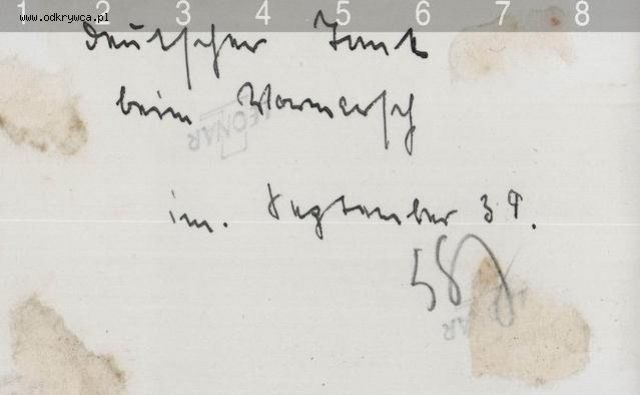 www.odkrywca.pl
1 2 3 4 5 6 7 8
Deutscher Tank
beim Vormarsch
im. September 39.
58
LEONAR